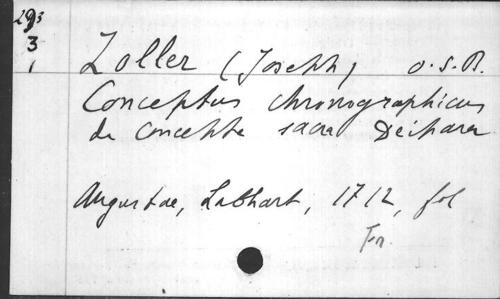 293
3
1
Zoller (Joseph) O.S.B.
Conceptus chronographicus
de concepta sacra Deipara
Augustae, Labhart, 1712, fol
Fn.